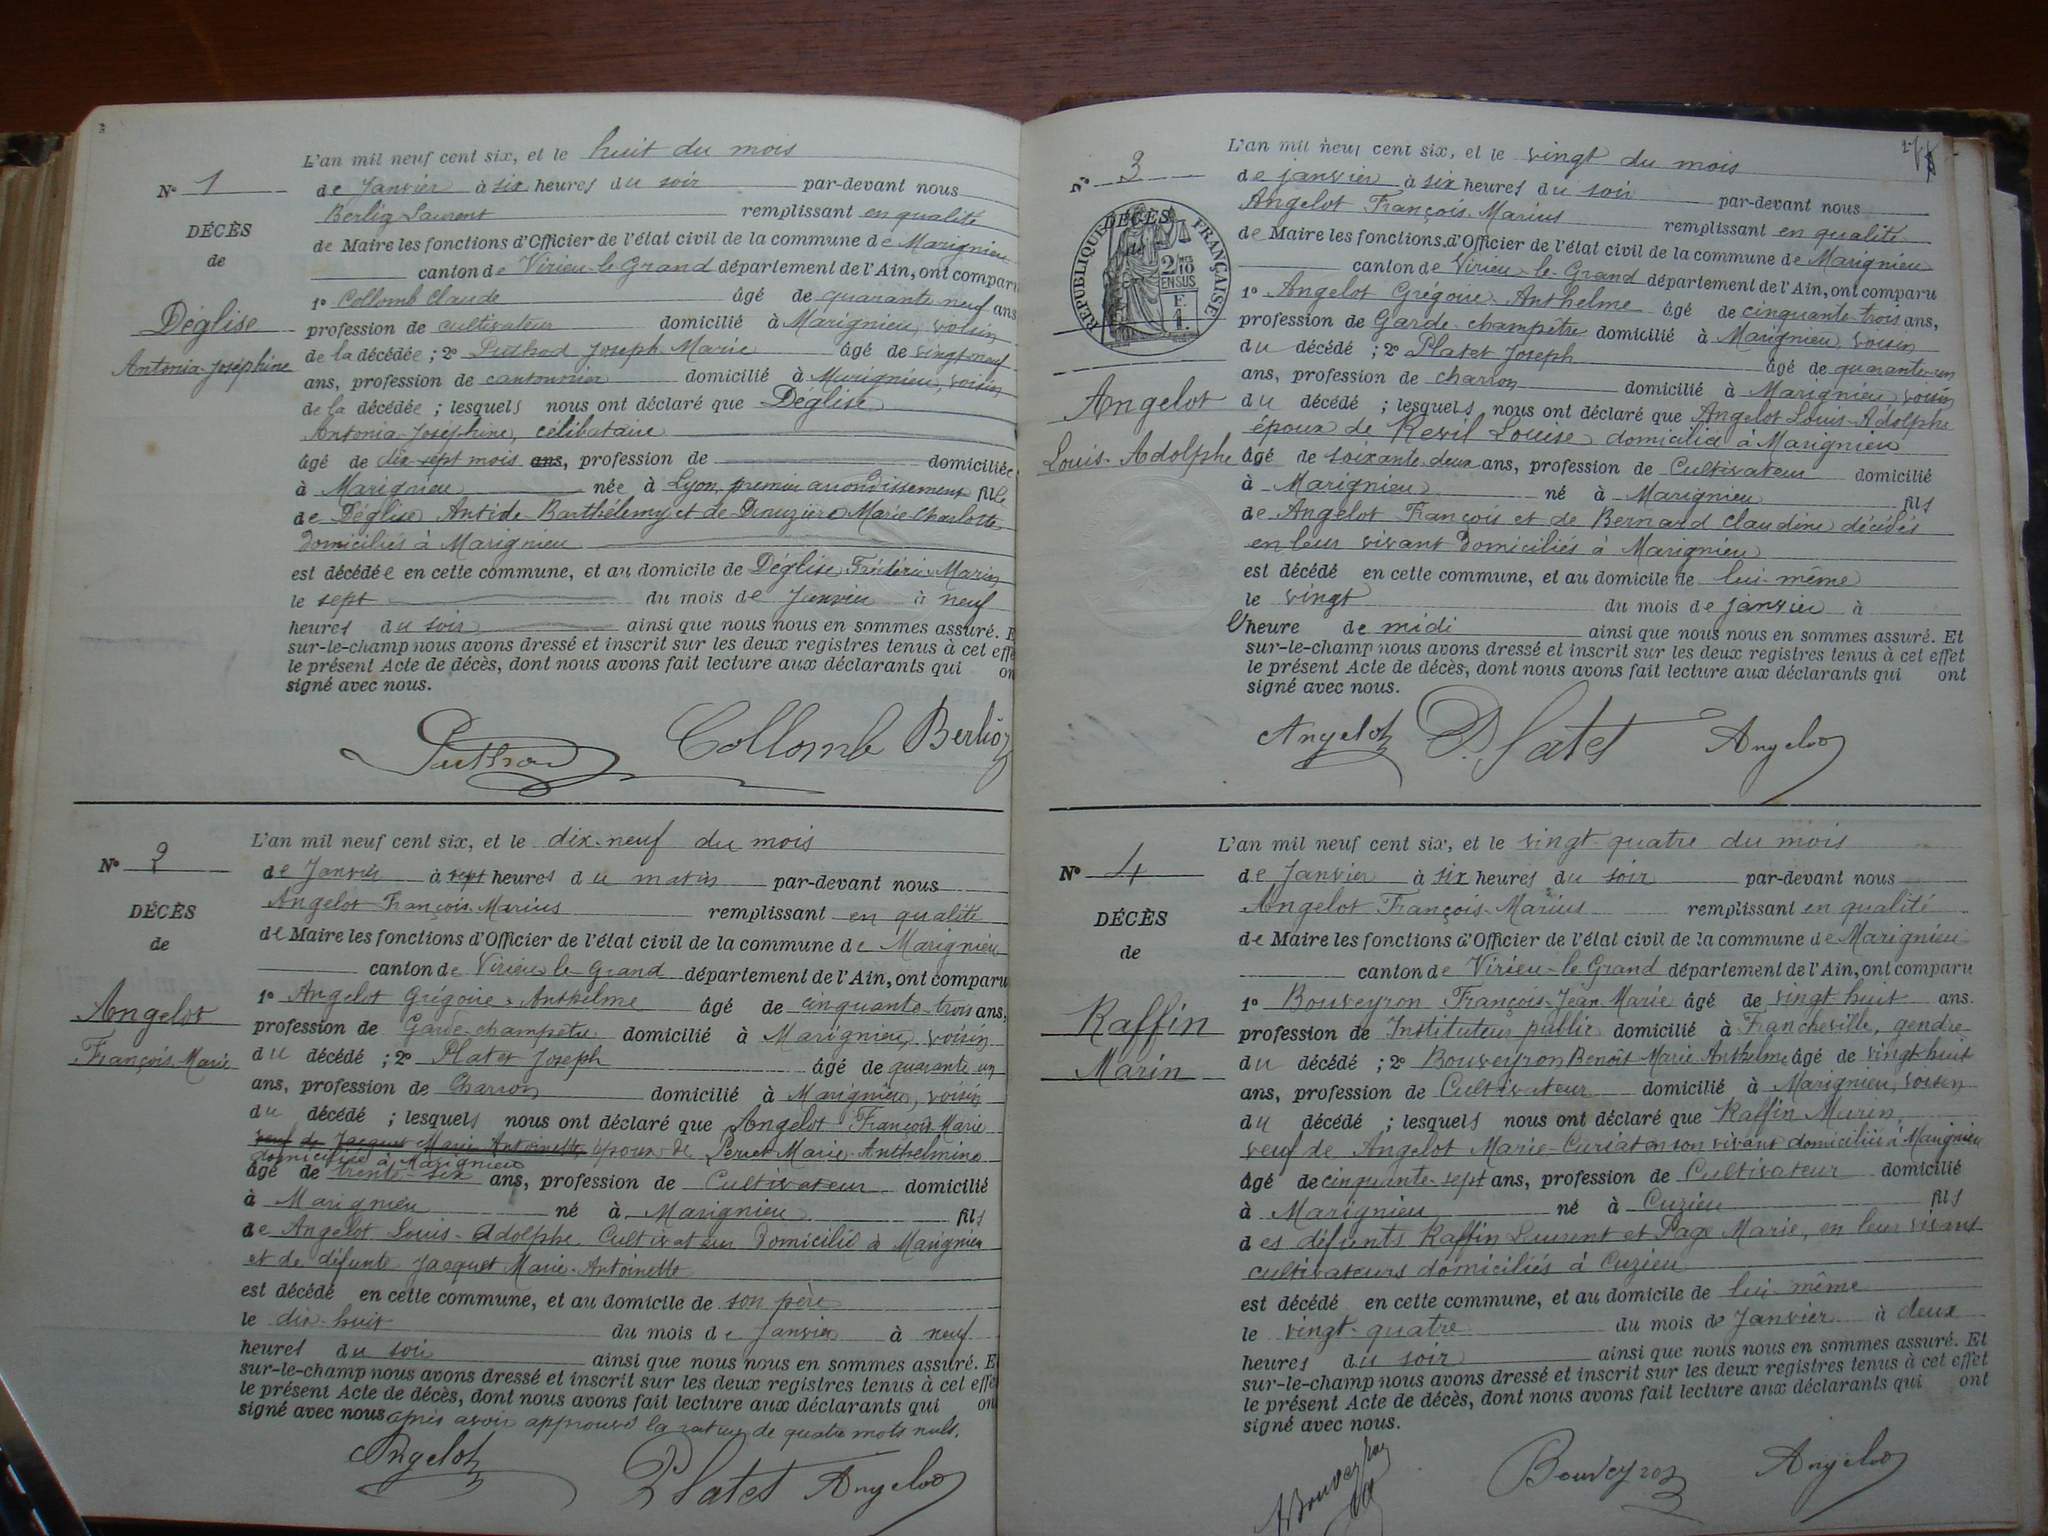 L'an mil neuf cent six, et le huit du mois
N° 1
de Janvier à six heures du soir par-devant nous
Berlioz Laurent remplissant en qualité
DÉCÈS
de Maire les fonctions d'Officier de l'état civil de la commune de Marignieu
de
canton de Virieu-le-Grand département de l'Ain, ont comparu
1° Collomb Claude âgé de quarante neuf ans
Déglise
profession de cultivateur domicilié à Marignieu, voisin
Antonia-Joséphine
de la décédée ; 2° Puthod Joseph-Marie âgé de vingt neuf
ans, profession de cantonnier domicilié à Marignieu, voisin
de la décédée ; lesquels nous ont déclaré que Déglise
Antonia-Joséphine, célibataire
âgé de dix-sept mois ans, profession de domiciliée
à Marignieu née à Lyon, premier arrondissement fille
de Déglise Antide-Barthélemy et de Marie Charlotte
domiciliés à Marignieu
est décédée en cette commune, et au domicile de Déglise Frédéric-Marin
le sept du mois de Janvier à neuf
heures du soir ainsi que nous nous en sommes assuré. E
sur-le-champ nous avons dressé et inscrit sur les deux registres tenus à cet effe
le présent Acte de décès, dont nous avons fait lecture aux déclarants qui on
signé avec nous.
Puthod Collomb Berlioz
L'an mil neuf cent six, et le dix-neuf du mois
N° 2
de Janvier à sept heures du matin par-devant nous
Angelot François-Marius remplissant en qualité
DÉCÈS
de Maire les fonctions d'Officier de l'état civil de la commune de Marignieu
de
canton de Virieu-le-Grand département de l'Ain, ont comparu
1° Angelot Grégoire-Anthelme âgé de cinquante-trois ans,
Angelot
profession de Garde-champêtre domicilié à Marignieu, voisin
François-Marie
du décédé ; 2° Platet Joseph âgé de quarante un
ans, profession de Charron domicilié à Marignieu, voisin
du décédé ; lesquels nous ont déclaré que Angelot François-Marie
veuf de Jacquet Marie Antoinette époux de Perret Marie-Anthelmine
domiciliée à Marignieu
âgé de trente-six ans, profession de Cultivateur domicilié
à Marignieu né à Marignieu fils
de Angelot Louis-Adolphe Cultivateur Domicilié à Marignieu
et de défunte Jacquet Marie-Antoinette
est décédé en cette commune, et au domicile de son père
le dix-huit du mois de Janvier à neuf
heures du soir ainsi que nous nous en sommes assuré. E
sur-le-champ nous avons dressé et inscrit sur les deux registres tenus à cet effe
le présent Acte de décès, dont nous avons fait lecture aux déclarants qui on
signé avec nous après avoir approuvé la rature de quatre mots nuls.
Angelot Platet Angelot
L'an mil neuf cent six, et le vingt du mois
N° 3
de janvier à six heures du soir par-devant nous
Angelot François-Marius remplissant en qualité
DÉCÈS
de
RÉPUBLIQUE FRANÇAISE
2/10 EN SUS
F. 1.
de Maire les fonctions d'Officier de l'état civil de la commune de Marignieu
canton de Virieu-le-Grand département de l'Ain, ont comparu
1° Angelot Grégoire-Anthelme âgé de cinquante-trois ans,
profession de Garde-champêtre domicilié à Marignieu, voisin
du décédé ; 2° Platet Joseph âgé de quarante-un
ans, profession de charron domicilié à Marignieu, voisin
Angelot
du décédé ; lesquels nous ont déclaré que Angelot Louis-Adolphe
époux de Revil Louise domiciliée à Marignieu
Louis-Adolphe
âgé de soixante-deux ans, profession de Cultivateur domicilié
à Marignieu né à Marignieu fils
de Angelot François et de Bernard Claudine décédés
en leur vivant domiciliés à Marignieu
est décédé en cette commune, et au domicile de lui-même
le vingt du mois de janvier à
l'heure de midi ainsi que nous nous en sommes assuré. Et
sur-le-champ nous avons dressé et inscrit sur les deux registres tenus à cet effet
le présent Acte de décès, dont nous avons fait lecture aux déclarants qui ont
signé avec nous.
Angelot Platet Angelot
L'an mil neuf cent six, et le vingt-quatre du mois
N° 4
de Janvier à six heures du soir par-devant nous
Angelot François-Marius remplissant en qualité
DÉCÈS
de Maire les fonctions d'Officier de l'état civil de la commune de Marignieu
de
canton de Virieu-le-Grand département de l'Ain, ont comparu
1° Bouveyron François-Jean-Marie âgé de vingt-huit ans.
Raffin
profession de Instituteur public domicilié à Francheville, gendre
du décédé ; 2° Bouveyron Benoît Marie Anthelme âgé de vingt-huit
Marin
ans, profession de Cultivateur domicilié à Marignieu, voisin
du décédé ; lesquels nous ont déclaré que Raffin Marin
veuf de Angelot Marie-Curiat en son vivant domiciliée à Marignieu
âgé de cinquante-sept ans, profession de Cultivateur domicilié
à Marignieu né à Cuzieu fils
des défunts Raffin Laurent et Page Marie, en leur vivant
cultivateurs domiciliés à Cuzieu
est décédé en cette commune, et au domicile de lui-même
le vingt-quatre du mois de Janvier à deux
heures du soir ainsi que nous nous en sommes assuré. Et
sur-le-champ nous avons dressé et inscrit sur les deux registres tenus à cet effet
le présent Acte de décès, dont nous avons fait lecture aux déclarants qui ont
signé avec nous.
Bouveyron Bouveyron Angelot